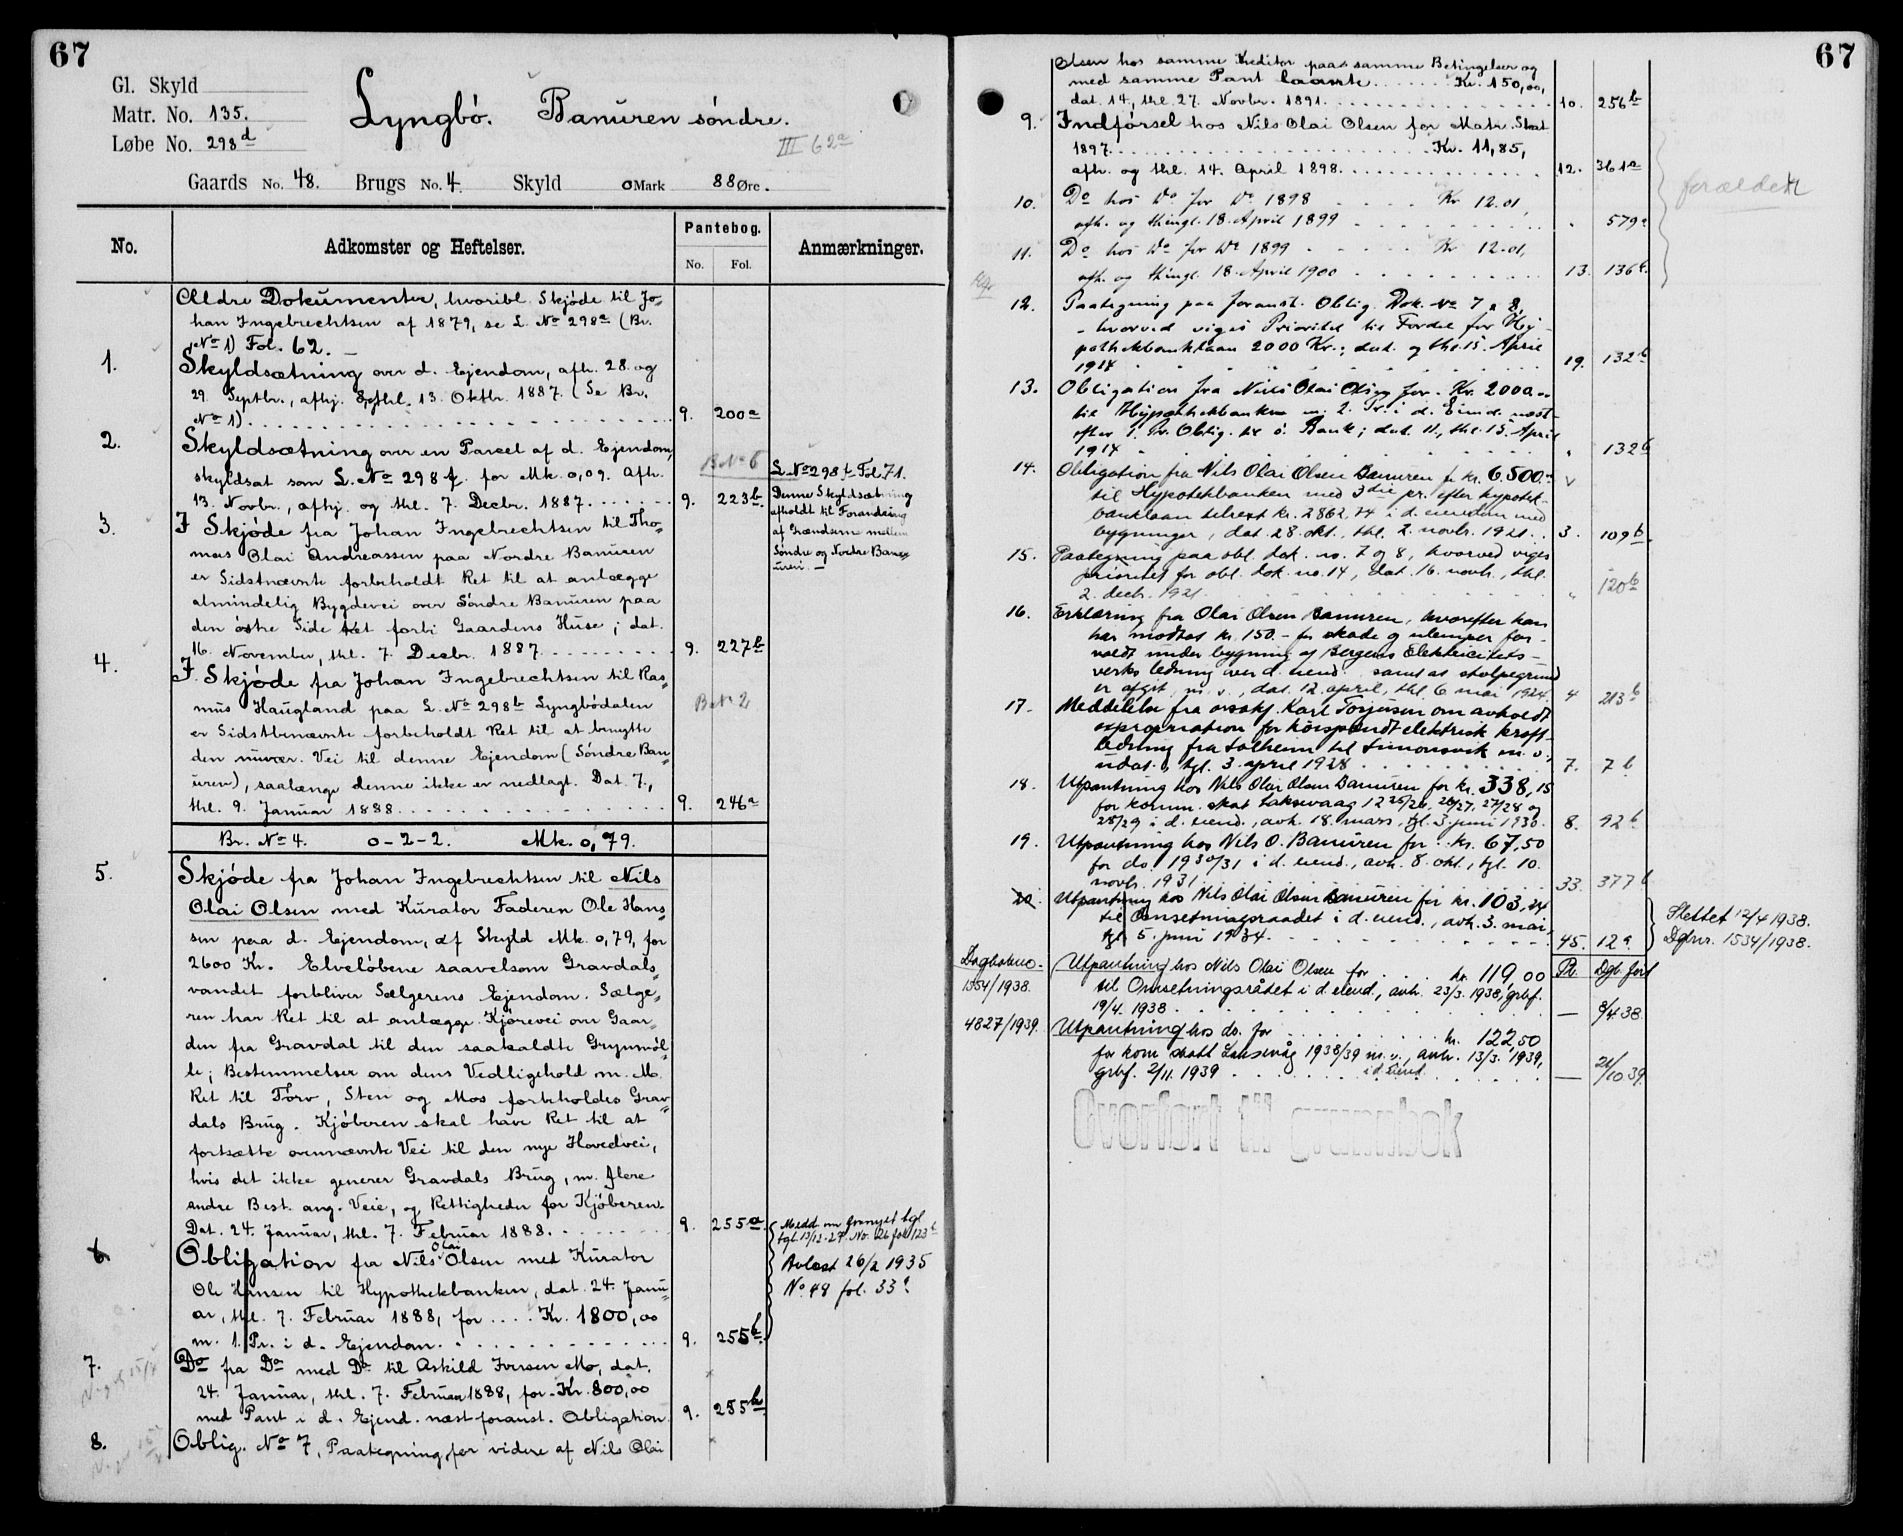 67
Gl. Skyld
Matr. No. 135.
Løbe No. 298d
Lyngbö. Banuren söndre.
III 62a
Gaards No. 48. Brugs No. 4. Skyld 0 Mark 88 Øre.
No. Adkomster og Heftelser. Pantebog. No. Fol. Anmærkninger.
Ældre Dokumenter, hvoribl. Skjöde til Jo-
han Ingebrechtsen af 1879, se L. No 298a (Br.
No 1) Fol. 62. —
1. Skyldsætning over d. Ejendom, afh. 28. og
29. Septbr., afhj. & thl. 13. Oktbr. 1887. (Se Br.
No 1) 9. 200a
2. Skyldsætning over en Parcel af d. Ejendom,
skyldsat som L. No 298f. for Mk. 0,09. Afh.
13. Novbr., afhj. og thl. 7. Decbr. 1887. 9. 223b
B No 6
L. No 298f Fol. 71.
Denne Skyldsætning
afholdt til Forandring
af Grændserne mellem
Söndre og Nordre Ban-
uren. —
3. I Skjöde fra Johan Ingebrechtsen til Tho-
mas Olai Andreassen paa Nordre Banuren
er Sidstnævnte forbeholdt Ret til at anlægge
almindelig Bygdevei over Söndre Banuren paa
den östre Side tæt forbi Gaardens Huse; dat.
16. November, thl. 7. Decbr. 1887 9. 227b
4. I Skjöde fra Johan Ingebrechtsen til Ras-
mus Haugland paa L. No 298b Lyngbödalen
er Sidstbenævnte forbeholdt Ret til at benytte
den nuvær. Vei til denne Ejendom (Söndre Ban-
uren), saalænge denne ikke er nedlagt. Dat. 7.,
thl. 9. Januar 1888. 9. 246a
Br. No 4. 0-2-2. Mk. 0,79.
5. Skjöde fra Johan Ingebrechtsen til Nils
Olai Olsen med Kurator Faderen Ole Hans-
sen paa d. Ejendom, af Skyld Mk. 0,79, for
2600 Kr. Elvelöbene saavelsom Gravdals-
vandet forbliver Sælgerens Ejendom. Sælge-
ren har Ret til at anlægge Kjörevei over Gaar-
den fra Gravdal til den saakaldte Grynmöl-
le; Bestemmelser om dens Vedligehold m. M.
Ret til Törv, Sten og Mos forbeholdes Grav-
dals Brug. Kjöberen skal have Ret til at
fortsætte ovennævnte Vei til den nye Hovedvei,
hvis det ikke generer Gravdals Brug, m. flere
andre Best. ang. Veie, og Rettigheder for Kjöberen.
Dat. 24. Januar, thl. 7. Februar 1888. 9. 255a
6. Obligation fra Nils Olai Olsen med Kurator
Ole Hansen til Hypothekbanken, dat. 24. Janu-
ar, thl. 7. Februar 1888, for .... Kr. 1800,00
m. 1. Pr. i d. Ejendom. 9. 255b
Medd. om fornyet tgl.
tgl. 13/12-27. No. 26 fol 123b
Avlæst 26/2 1935
No. 48 fol. 33a
7. Do fra Do med Do til Askild Iversen Mo, dat.
24. Januar, thl. 7. Februar 1888, for Kr. 800,00
med Pant i d. Ejend. næst foranst. Obligation 9. 255b
8. Oblig. No 7, Paategning for videre af Nils Olai
67
Olsen hos samme Kreditor paa samme Betingelser og
med samme Pant laante Kr. 150,00,
dat. 14, thl. 27. Novbr. 1891. 10. 256b
9. Indförsel hos Nils Olai Olsen for Matr. Skat
1897 Kr. 11,85,
afh. og thl. 14. April 1898. 12. 361a
forældet
10. Do hos Do for Do 1898 Kr 12.01,
afh. og thingl. 18. April 1899 " 579a
11. Do hos Do for Do 1899 Kr 12.01,
afh. og thingl. 18. April 1900 13. 136b
12. Paategning paa foranst. Oblig. Dok. No 7 & 8,
- hvorved viges Prioritet til Fordel for Hy-
pothekbanklaan 2000 Kr.; dat. og thl. 15. April
1914 19. 132b
13. Obligation fra Nils Olai Olsen for Kr. 2000.00
til Hypothekbanken m. 2. Pr. i d. Eiend. næst
efter 1. Pr. Oblig. til s. Bank; dat. 11., thl. 15. April
1914 " 132b
14. Obligation fra Nils Olai Olsen Banuren for kr. 6.500.-
til Hypotekbanken med 3die pr. efter hypotek-
banklaan tilrest kr. 2862,74 i d. eiendom med
bygninger, dat. 28. okt., thl. 2. novbr. 1921. 3. 109b
15. Paategning paa obl. dok. no. 7 og 8, hvorved viges
prioritet for obl. dok. no. 14, dat. 16. novbr., thl.
2. decb. 1921 " 120b
16. Erklæring fra Olai Olsen Banuren, hvorefter han
har modtat kr. 150.- for skade og ulemper for-
voldt under bygning af Bergens Elektricitets-
verks ledning over d. eiend. samt at stolpegrund
er afgit, m. v., dat. 12. april, thl. 6. mai 1924 4 213b
17. Meddelelse fra orsakf. Karl Torjussen om avholdt
expropriation for höispændt elektrisk kraft-
ledning fra Solheim til Simonsvik m. v.,
udat., tgl. 3. april 1928 7. 7b
18. Utpantning hos Nils Olai Olsen Banuren for kr. 338,15
for komm. skat Laksevaag 1925/26, 26/27, 27/28 og
28/29 i d. eiend., avh. 18. mars, tgl. 3. juni 1930. 8. 92b
19. Utpantning hos Nils O. Banuren for kr. 67,50
for do. 1930/31 i d. eiend., avh. 8. okt., tgl. 10.
novbr. 1931 33. 377b
20. Utpantning hos Nils Olai Olsen Banuren for kr. 103,24
til Omsetningsraadet i d. eiend., avh. 3. mai,
tgl. 5. juni 1934. 45. 12a.
Slettet 12/4 1938.
Dgbnr. 1534/1938.
Dagboknr. Pb. Dgb. ført
1554/1938. Utpantning hos Nils Olai Olsen for kr. 119,00
til Omsetningsrådet i d. eiend., avh. 23/3. 1938, grbf.
19/4. 1938 — 8/4.38.
4827/1939. Utpantning hos do. for kr. 122,50
for kom. skatt Laksevåg 1938/39 m. v., avh. 13/3. 1939,
i d. eiend.
grbf. 2/11. 1939 — 21/10 39.
Overført til grunnbok